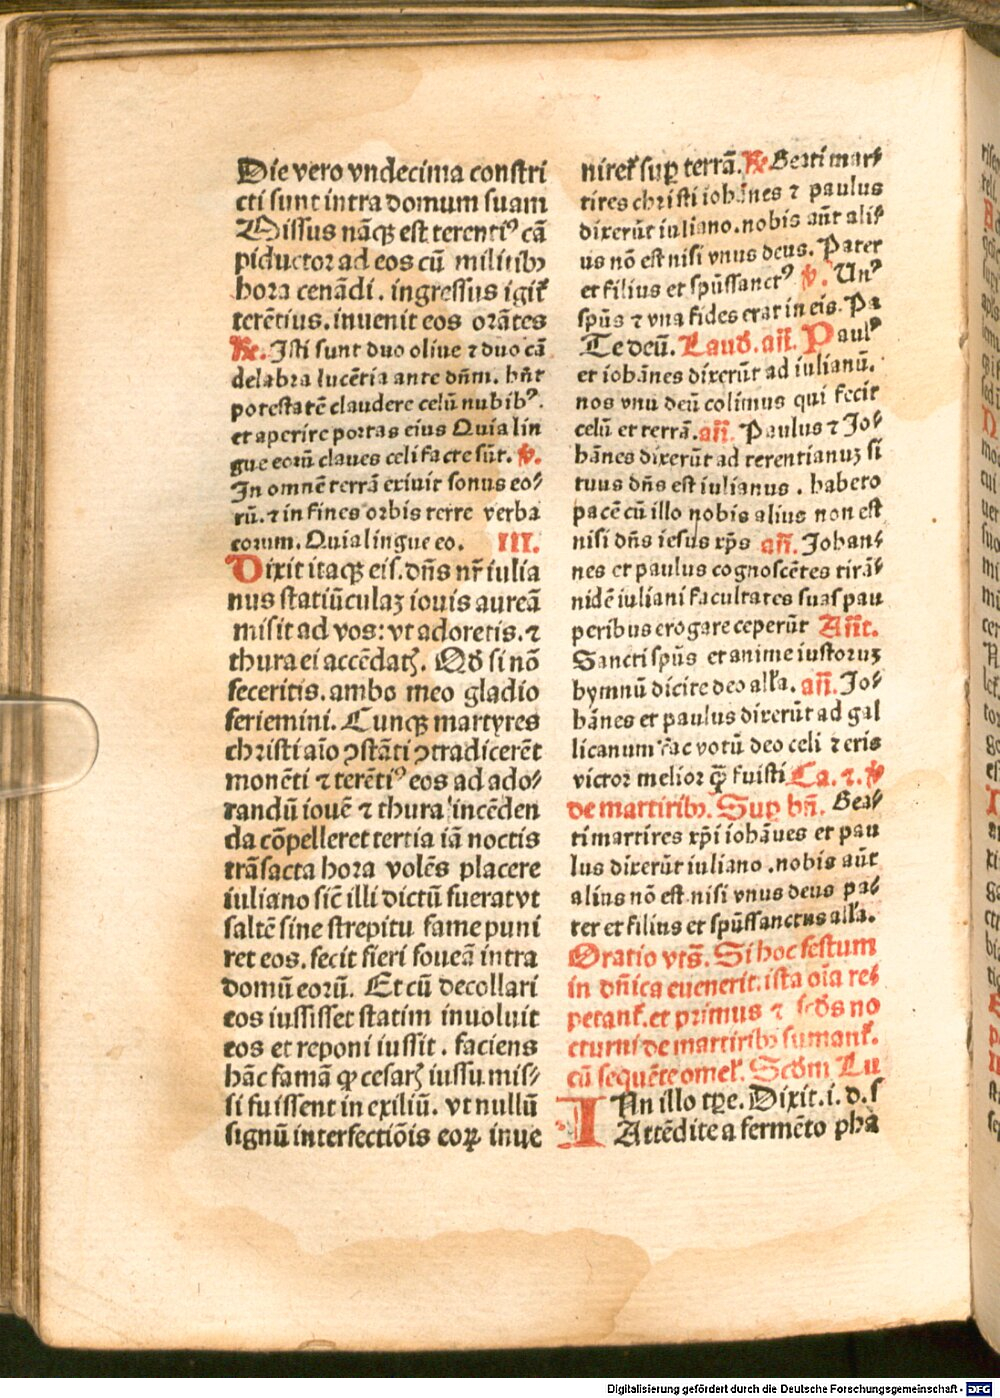 Die vero vndecima constri
cti sunt intra domum suam
Missus nāqꝫ est terentiꝰ cā
piductor ad eos cū militibꝫ
hora cenādi. ingressus igit᷑
terētius. inuenit eos orātes
℟. Isti sunt duo oliue ⁊ duo cā
delabra lucētia ante dn̄m. hn̄t
potestatē claudere celū nubibꝰ.
et aperire portas eius Quia lin
gue eorū claues celi facte sūt. ℣.
In omnē terrā exiuit sonus eo⸗
rū. ⁊ in fines orbis terre verba
eorum. Quia lingue eo. III.
Dixit itaqꝫ eis. dn̄s nr̄ iulia
nus statiūculaꝫ iouis aureā
misit ad vos: vt adoretis. ⁊
thura ei accēdatꝭ. Qd̄ si nō
feceritis. ambo meo gladio
feriemini. Cunqꝫ martyres
christi aīo ꝯstāti ꝯtradicerēt
monēti ⁊ terētiꝰ eos ad ado⸗
randū iouē ⁊ thura incēden
da cōpelleret tertia iā noctis
trāsacta hora volēs placere
iuliano sic̄ illi dictū fuerat vt
saltē sine strepitu fame puni
ret eos. fecit fieri foueā intra
domū eorū. Et cū decollari
eos iussisset statim inuoluit
eos et reponi iussit. faciens
hāc famā ꝙ cesarꝭ iussu mis⸗
si fuissent in exiliū. vt nullū
signū interfectiōis eoꝝ inue
niret᷑ suꝑ terrā. ℟ Beati mar⸗
tires christi iohānes ⁊ paulus
dixerūt iuliano. nobis aūt ali⸗
us nō est nisi vnus deus. Pater
et filius et spūssanctꝰ ℣. Unꝰ
spūs ⁊ vna fides erat in eis. Pa
Te deū. Laud. añ. Paulꝰ
et iohānes dixerūt ad iulianū.
nos vnu deū colimus qui fecit
celū et terrā. añ. Paulus ⁊ Jo⸗
hānes dixerūt ad terentianuꝫ si
tuus dn̄s est iulianus. habeto
pacē cū illo nobis alius non est
nisi dn̄s iesus xp̄s añ. Johan⸗
nes et paulus cognoscētes tirā⸗
nidē iuliani facultates suas pau
peribus erogare ceperūt Añt.
Sancti spūs et anime iustoruꝫ
hymnū dicite deo alľa. añ. Jo⸗
hānes et paulus dixerūt ad gal
licanum fac votū deo celi ⁊ eris
victor melior q̄ꝫ fuisti Ca. ⁊. ℣
de martiribꝫ. Suꝑ bñ. Bea⸗
ti martires xp̄i iohāues et pau
lus dixerūt iuliano. nobis aūt
alius nō est nisi vnus deus pa⸗
ter et filius et spūssanctus alľa.
Oratio vts̄. Si hoc festum
in dn̄ica euenerit. ista oīa re⸗
petant᷑. et primus ⁊ scd̄s no
cturni de martiribꝫ sumant᷑.
cū sequēte omel᷑. Scd̄m Lu
IN illo tꝑe. Dixit. i. d. s
Attēdite a fermēto pha